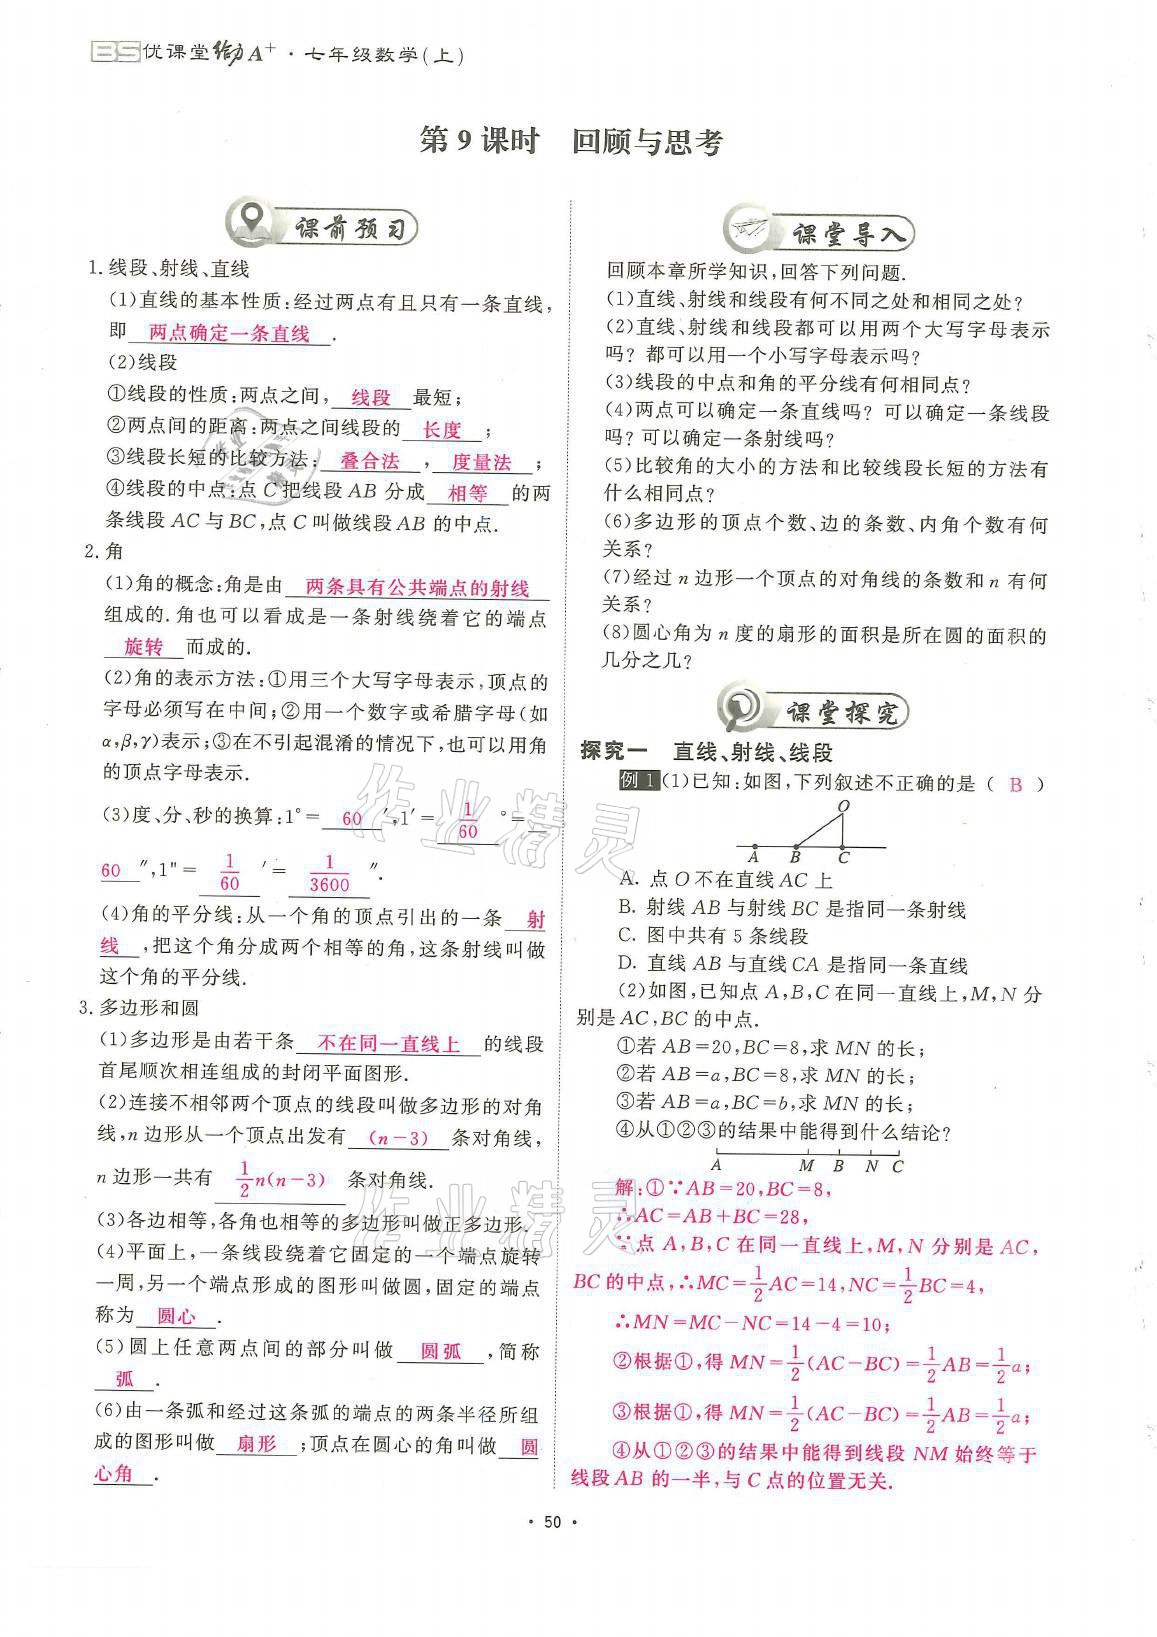 BS优课堂给力A+·七年级数学(上)
第9课时 回顾与思考
课前预习
1.线段、射线、直线
(1)直线的基本性质:经过两点有且只有一条直线,
即 两点确定一条直线 .
(2)线段
①线段的性质:两点之间, 线段 最短;
②两点间的距离:两点之间线段的 长度 ;
③线段长短的比较方法: 叠合法 , 度量法 ;
④线段的中点:点C把线段AB分成 相等 的两
条线段AC与BC,点C叫做线段AB的中点.
2.角
(1)角的概念:角是由 两条具有公共端点的射线
组成的.角也可以看成是一条射线绕着它的端点
旋转 而成的.
(2)角的表示方法:①用三个大写字母表示,顶点的
字母必须写在中间;②用一个数字或希腊字母(如
α,β,γ)表示;③在不引起混淆的情况下,也可以用角
的顶点字母表示.
(3)度、分、秒的换算:1°= 60 ′,1′= 1/60 °=
60 ″,1"= 1/60 ′= 1/3600 ″.
(4)角的平分线:从一个角的顶点引出的一条 射
线 ,把这个角分成两个相等的角,这条射线叫做
这个角的平分线.
3.多边形和圆
(1)多边形是由若干条 不在同一直线上 的线段
首尾顺次相连组成的封闭平面图形.
(2)连接不相邻两个顶点的线段叫做多边形的对角
线,n边形从一个顶点出发有 (n-3) 条对角线,
n边形一共有 1/2n(n-3) 条对角线.
(3)各边相等,各角也相等的多边形叫做正多边形.
(4)平面上,一条线段绕着它固定的一个端点旋转
一周,另一个端点形成的图形叫做圆,固定的端点
称为 圆心 .
(5)圆上任意两点间的部分叫做 圆弧 ,简称
弧 .
(6)由一条弧和经过这条弧的端点的两条半径所组
成的图形叫做 扇形 ;顶点在圆心的角叫做 圆
心角 .
课堂导入
回顾本章所学知识,回答下列问题.
(1)直线、射线和线段有何不同之处和相同之处?
(2)直线、射线和线段都可以用两个大写字母表示
吗? 都可以用一个小写字母表示吗?
(3)线段的中点和角的平分线有何相同点?
(4)两点可以确定一条直线吗? 可以确定一条线段
吗?可以确定一条射线吗?
(5)比较角的大小的方法和比较线段长短的方法有
什么相同点?
(6)多边形的顶点个数、边的条数、内角个数有何
关系?
(7)经过n边形一个顶点的对角线的条数和n有何
关系?
(8)圆心角为n度的扇形的面积是所在圆的面积的
几分之几?
课堂探究
探究一 直线、射线、线段
例1 (1)已知:如图,下列叙述不正确的是( B )
O
A B C
A. 点O不在直线AC上
B. 射线AB与射线BC是指同一条射线
C. 图中共有5条线段
D. 直线AB与直线CA是指同一条直线
(2)如图,已知点A,B,C在同一直线上,M,N分
别是AC,BC的中点.
①若AB=20,BC=8,求MN的长;
②若AB=a,BC=8,求MN的长;
③若AB=a,BC=b,求MN的长;
④从①②③的结果中能得到什么结论?
A M B N C
解:①∵AB=20,BC=8,
∴AC=AB+BC=28,
∵点A,B,C在同一直线上,M,N分别是AC,
BC的中点,∴MC=1/2AC=14,NC=1/2BC=4,
∴MN=MC-NC=14-4=10;
②根据①,得MN=1/2(AC-BC)=1/2AB=1/2a;
③根据①,得MN=1/2(AC-BC)=1/2AB=1/2a;
④从①②③的结果中能得到线段NM始终等于
线段AB的一半,与C点的位置无关.
作业精灵
作业精灵
· 50 ·